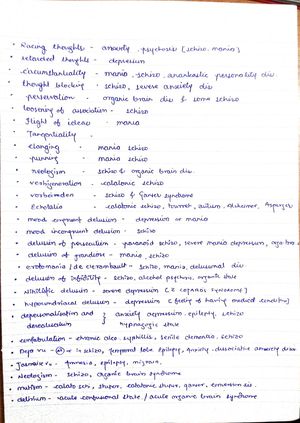 Racing thoughts - anxiety, psychosis [schizo, mania]
retarded thoughts - depression
circumstantiality - mania, schizo, anankastic personality dis
thought blocking - schizo, severe anxiety dis
perseveration - organic brain dis & some schizo
loosening of association - schizo
Flight of ideas - mania
Tangentiality -
clanging - mania schizo
punning - mania schizo
neologism - schizo & organic brain dis
verbigeration - catatonic schizo
vorbeireden - schizo & Ganser syndrome
Echolalia - catatonic schizo, tourret, autism, alzheimer, Asperger
mood congruent delusion - depression or mania
mood incongruent delusion - schizo
delusion of persecution - paranoid schizo, severe mania depression,
delusion of grandeur - mania, schizo
erotomania/ de clerambault - schizo, mania, delusional dis
delusion of infidelity - schizo, alcohol psychosis, organic state
Nihilistic delusion - severe depression (2 cotards syndrome)
hypocondriacal delusion - depression (feeling of having medical condition)
depersonalisation and } anxiety, depression, epilepsy, schizo
derealisation } hypnogogic state
confabulation - chronic alco, syphilis, senile dementia, schizo
Deja vu - in schizo, temporal lobe epilepsy, anxiety - dissociative anxiety disor
Jamais vu - amnesia, epilepsy, migraine,
Neologism - schizo, organic brain syndrome
mutism - catato schi, stupor, catatonic stupor, ganser, conversion dis.
delirium - acute confusional state / acute organic brain syndrome